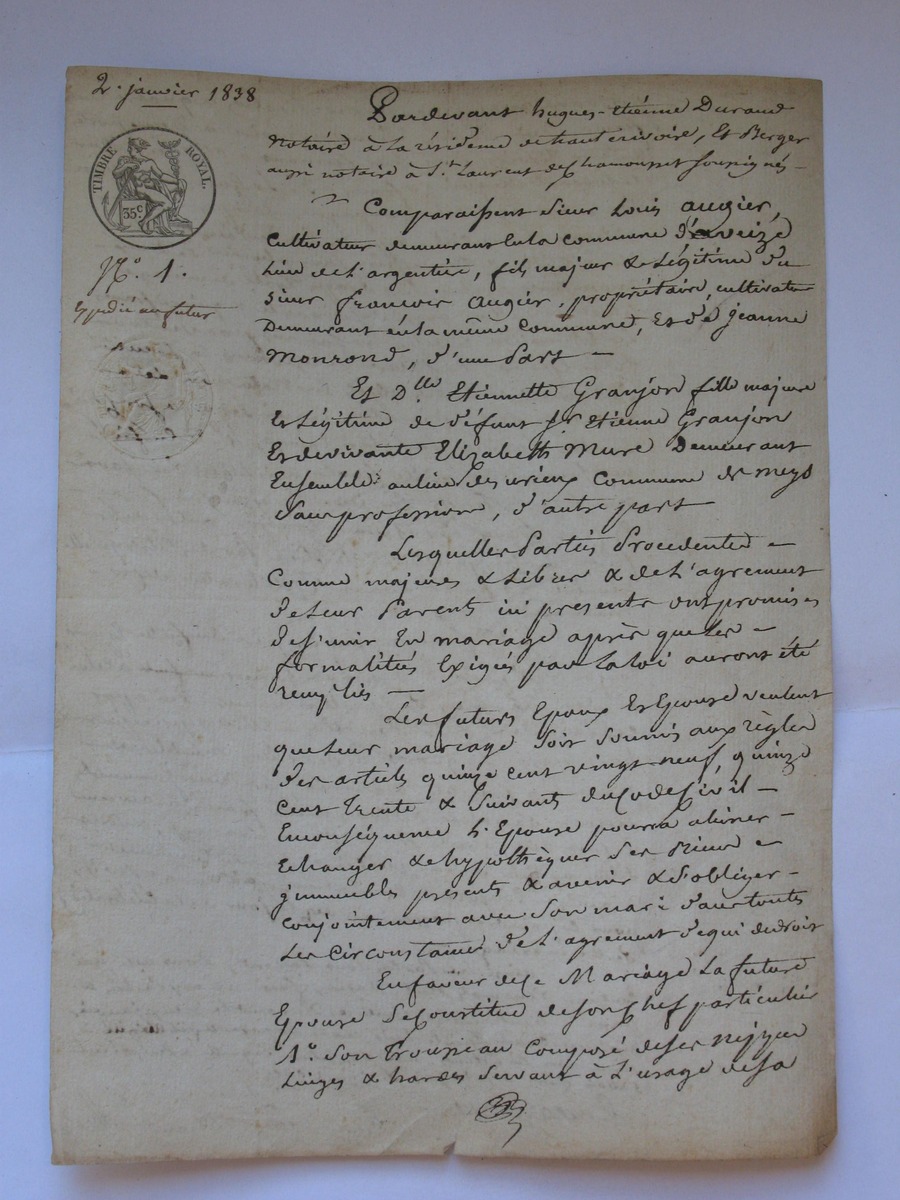 2. janvier 1838
TIMBRE ROYAL.
35c
No. 1.
Expédié au futur
Pardevant hugues-Etiénne Durand
Notaire à la résidence de hauterivoire, Et Berger
aussi notaire à St. Laurent de Chamousset soussignés -
Comparaissent Sieur Louis augier,
Cultivateur demeurant en la commune d'aveize
Lieu de L'argentiére, fils majeur & Légitime du
sieur francois augier, propriétaire, cultivateur
Demeurant en la même Commune, Et de jeanne
Monrond, d'une Part -
Et Dlle Etiennette Granjon fille majeure
Et Légitime de défunt Sr Etienne Granjon
Et de vivante Elizabeth Mure Demeurant
Ensemble au lieu des Commune de meys
Sans profession, d'autre part
Lesquelles Parties Procedentes -
Comme majeures & Libres & de L'agrement
de Leur Parents ici presents ont promis
de S'unir En mariage après que Les -
formalités Exigés par La Loi auront été
remplis -
Les futurs Epoux Et Epouse veulent
que Leur mariage Soit Soumis aux règles
des articles quinze cent vingt neuf, quinze
cent trente & Suivants du Code Civil -
En conséquence L'Epouse pourra aliener -
Echanger & hypothèquer Ses Biens -
jmmeubles présents & avenir & S'obliger -
conjointement avec Son mari dans toutes
Les Circonstances de L'agrement de qui de droit
En faveur de Ce Mariage La future
Epouse Se Constitue de Son Chef particulier
1o. Son Trousseau Composé de Ses
Linges & hardes Servant à L'usage de Sa